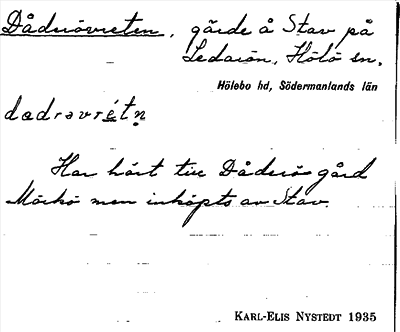 Dådrövreten, gärde å Stav på
Ledarön, Hölö sn.
Hölebo hd, Södermanlands län
dɑdrəvrétn̥
Har hört till Dåderö gård
Mörkö men inköpts av Stav.
KARL-ELIS NYSTEDT 1935